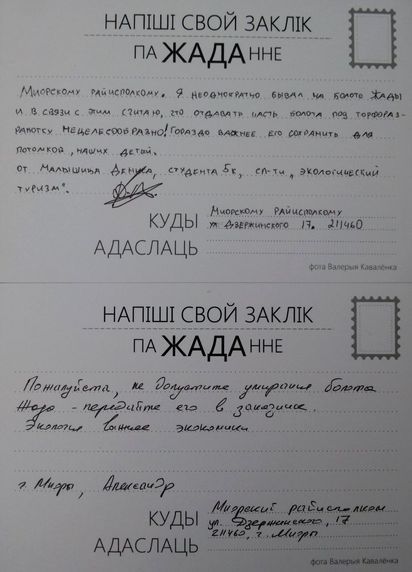 НАПІШІ СВОЙ ЗАКЛІК
ПА ЖАДА ННЕ
Миорскому райисполкому. Я неоднократно бывал на болоте Жады
и в связи с этим считаю, что отдавать часть болота под торфораз-
работку нецелесообразно! Гораздо важнее его сохранить для
потомков, наших детей.
от Малышица Дениса, студента 5к, сп-ти „экологический
туризм".
КУДЫ
Миорскому райисполкому
ул Дзержинского 17. 211460
АДАСЛАЦЬ
фота Валерыя Каваленка
НАПІШІ СВОЙ ЗАКЛІК
ПА ЖАДА ННЕ
Пожалуйста, не допустите умирания болота
Жада - передайте его в заказник.
Экология важнее экономики
г. Миоры, Александр
КУДЫ
Миорский райисполком
ул. Дзержинского, 17
211460, г. Миоры
АДАСЛАЦЬ
фота Валерыя Каваленка